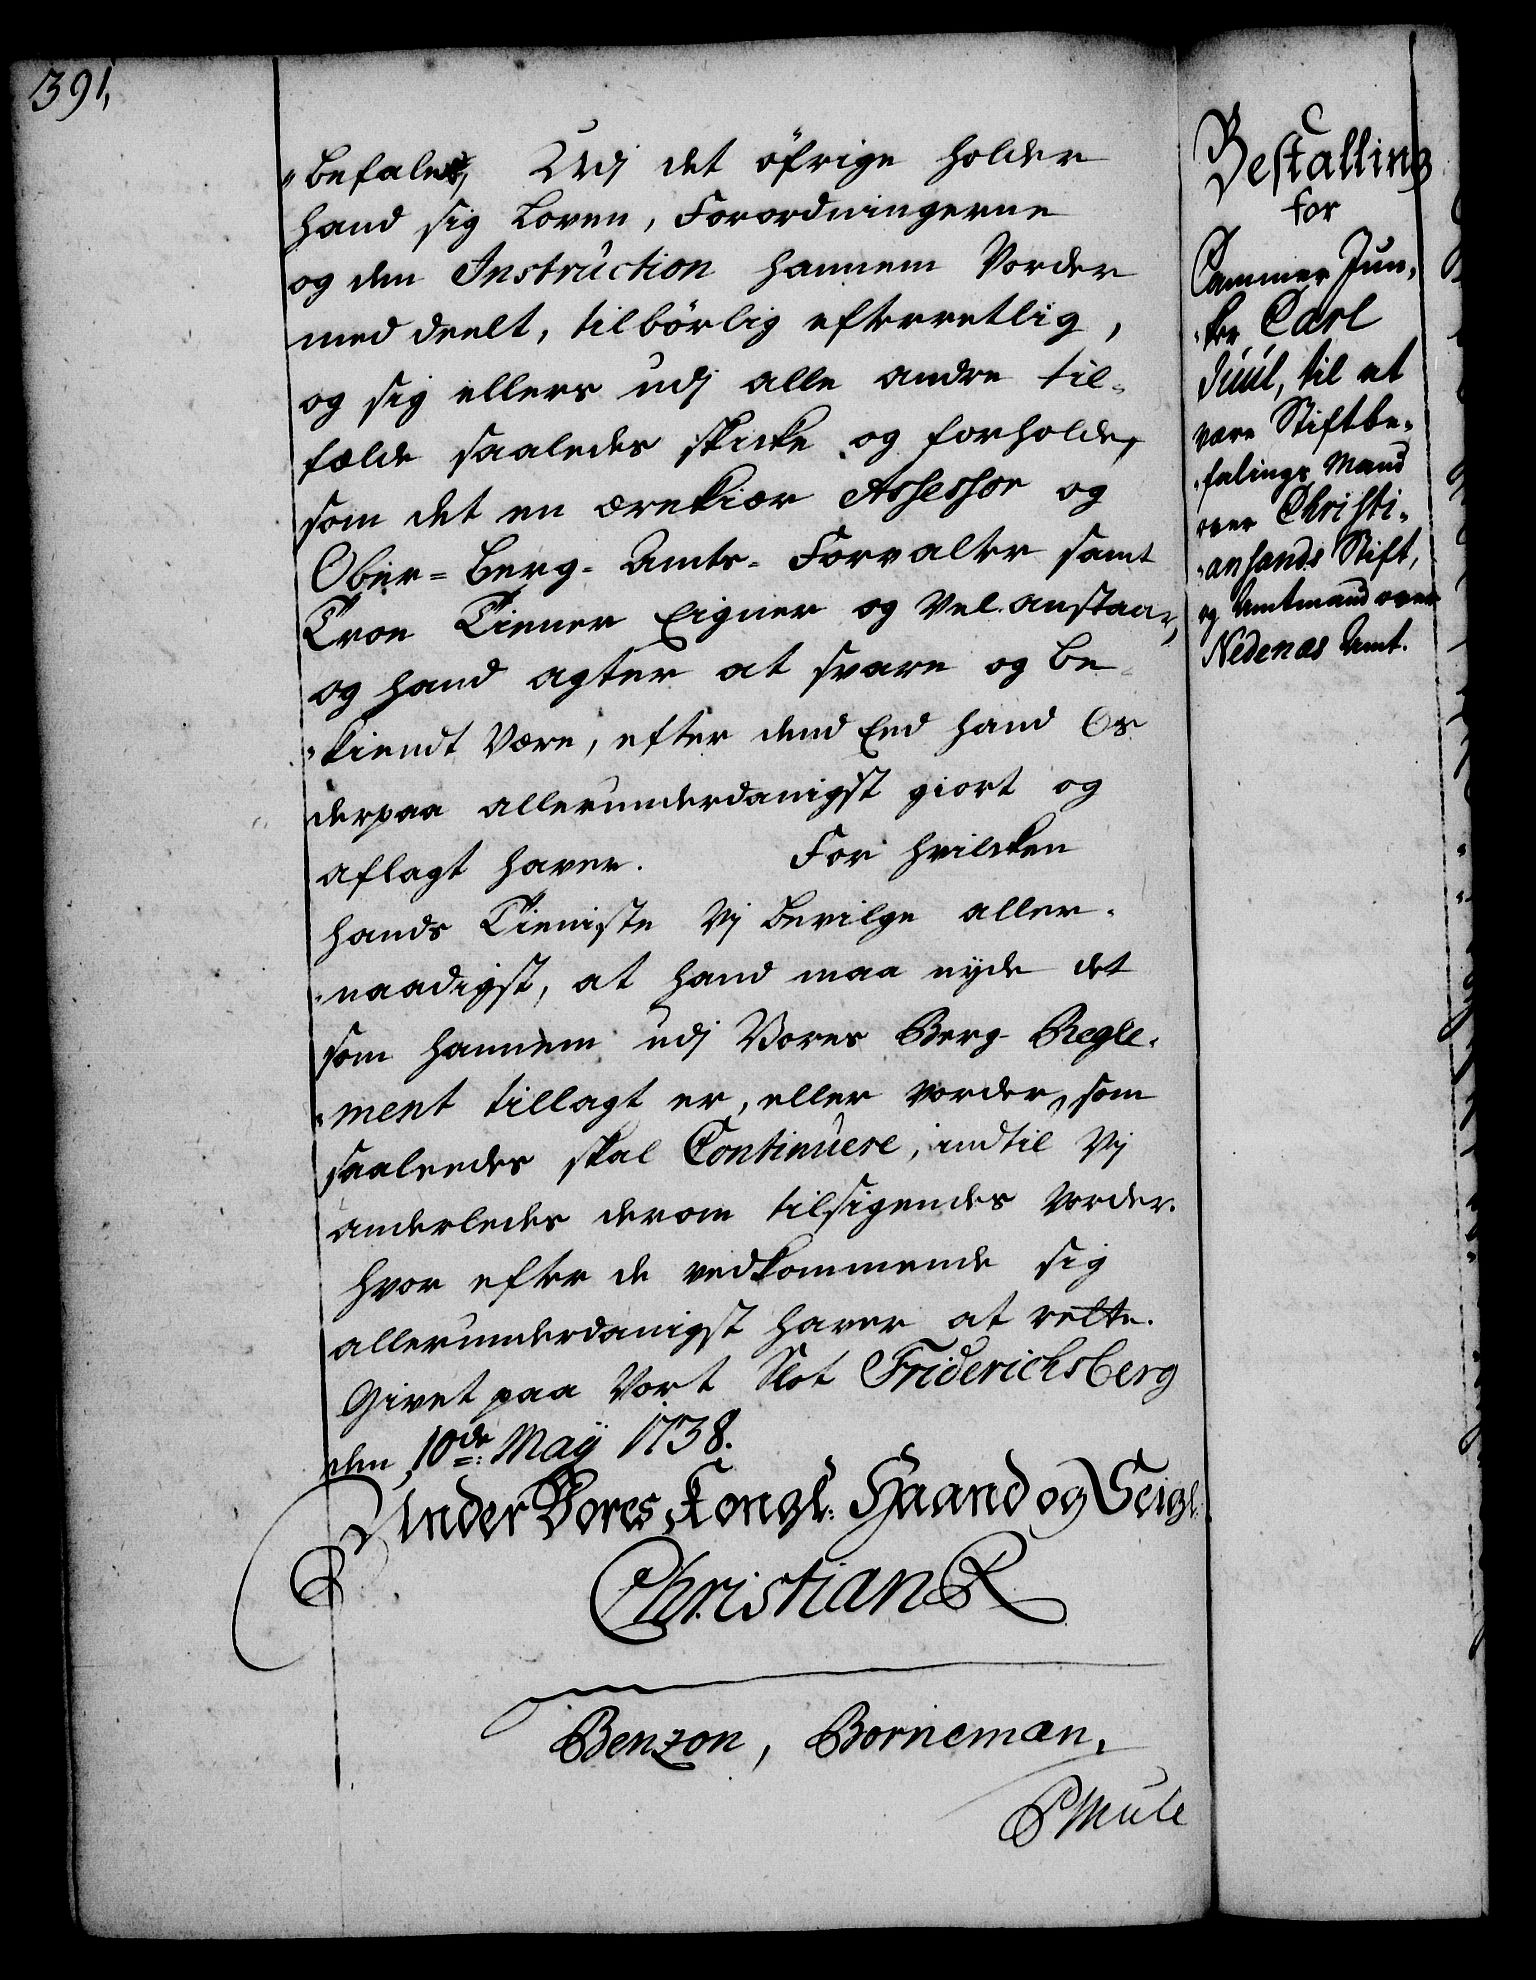 391,
"befales, Udj det öfrige holder
hand sig Loven, Forordningerne
og den Instruction hannem Vorder
med deelt, tilbörlig efterretlig,
og sig ellers udj alle andre til-
fælde saaledes skicke og forholde,
som det en ærekiær Assessor og
Ober-Berg-Amts-Forvalter samt
Troe Tiener Eigner og Vel anstaar,
og hand agter at svare og be-
"kiendt Være, efter dend Eed hand Os
derpaa allerunderdanigst giort og
aflagt haver. For hvilcken
hands Tieniste Vj bevilge aller-
"naadigst, at hand maa nyde det
som hannem udj Vores Berg-Regle-
"ment tillagt er, eller vorder, som
saaleedes skal Continuere, indtil Vj
anderledes derom tilsigendes vorder.
Hvor efter de vedkommende sig
allerunderdanigst haver at rette.
Givet paa Vort Slot Friderichsberg
den 10de: Maij 1738.
Under Vores Kongl: Haand og Seigl:
Christian R
Benzon, Borneman,
P Mule
Bestalling
for
Cammer Jun-
"ker Carl
Juul, til at
være Stiftbe-
"falings Mand
over Christi-
"ansands Stift,
og Amtmand over
Nedenæs Amt.